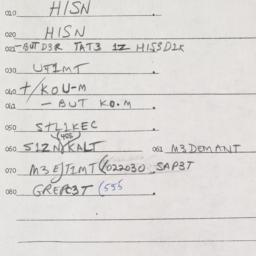 010 HISN
020 HISN
021 -BUT D3R TAT3 1Z HISSD1K
030 UT1MT
040 +/KOU-M
041 - BUT KO.M
050 S+L1KEC
060 S1ZN/KALT 061 M3DEMANT
070 M3E/T1MT (022030 SAP3T
080 GREPE3T (555